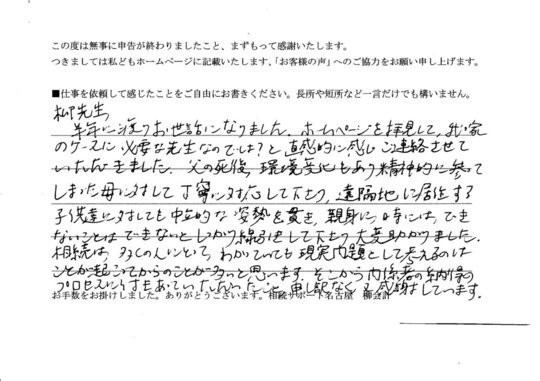 この度は無事に申告が終わりましたこと、まずもって感謝いたします。
つきましては私どもホームページに記載いたします、「お客様の声」へのご協力をお願い申し上げます。
■仕事を依頼して感じたことをご自由にお書きください。長所や短所など一言だけでも構いません。
柳先生
半年に渡りお世話になりました。ホームページを拝見して、我が家
のケースに必要な先生なのでは?と直感的に感じご連絡させて
いただきました。父の死後、環境変化もあり精神的に参って
しまった母に対して丁寧に対応して下さり、遠隔地に居住する
子供達に対しても中立的な姿勢を貫き、親身に、時には、でき
ないことはできないとしっかり線引きして下さり大変助かりました。
相続は、多くの人にとって、わかっていても現実問題として考えるのは
ことが起こってからのことが多いと思います。そこから関係者の納得の
プロセスに いただいたこと、申し訳なくも感謝しています。
お手数をお掛けしました。ありがとうございます。相続サポート名古屋 柳会計